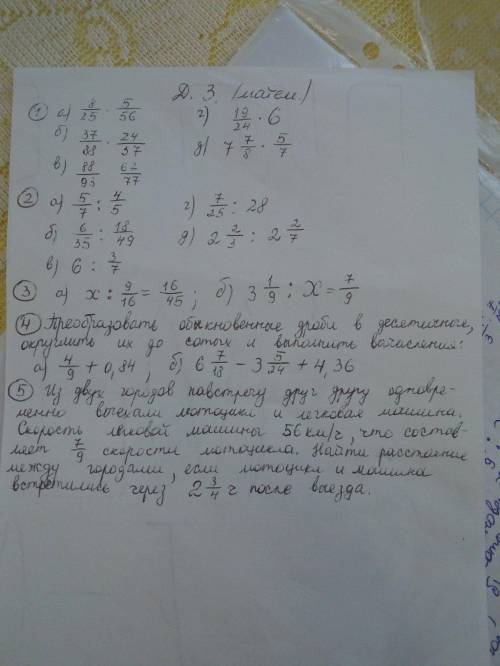 Д. З. (матем)
① а) 8/25 · 5/56 г) 19/24 · 6
б) 37/88 · 24/37 д) 7 7/8 · 5/7
в) 88/93 62/77
② а) 5/7 : 4/5 г) 7/25 : 28
б) 6/35 : 18/49 д) 2 2/3 : 2 2/7
в) 6 : 3/7
③ а) x : 9/16 = 16/45 ; б) 3 1/9 : x = 7/9
④ Преобразовать обыкновенные дроби в десятичные,
округлить их до сотых и выполнить вычисления:
а) 4/9 + 0,84 ; б) 6 7/18 - 3 5/24 + 4,36
⑤ Из двух городов навстречу друг другу одновре-
менно выехали мотоцикл и легковая машина.
Скорость легковой машины 56 км/ч, что состав-
ляет 7/9 скорости мотоцикла. Найти расстояние
между городами, если мотоцикл и машина
встретились через 2 3/4 ч после выезда.